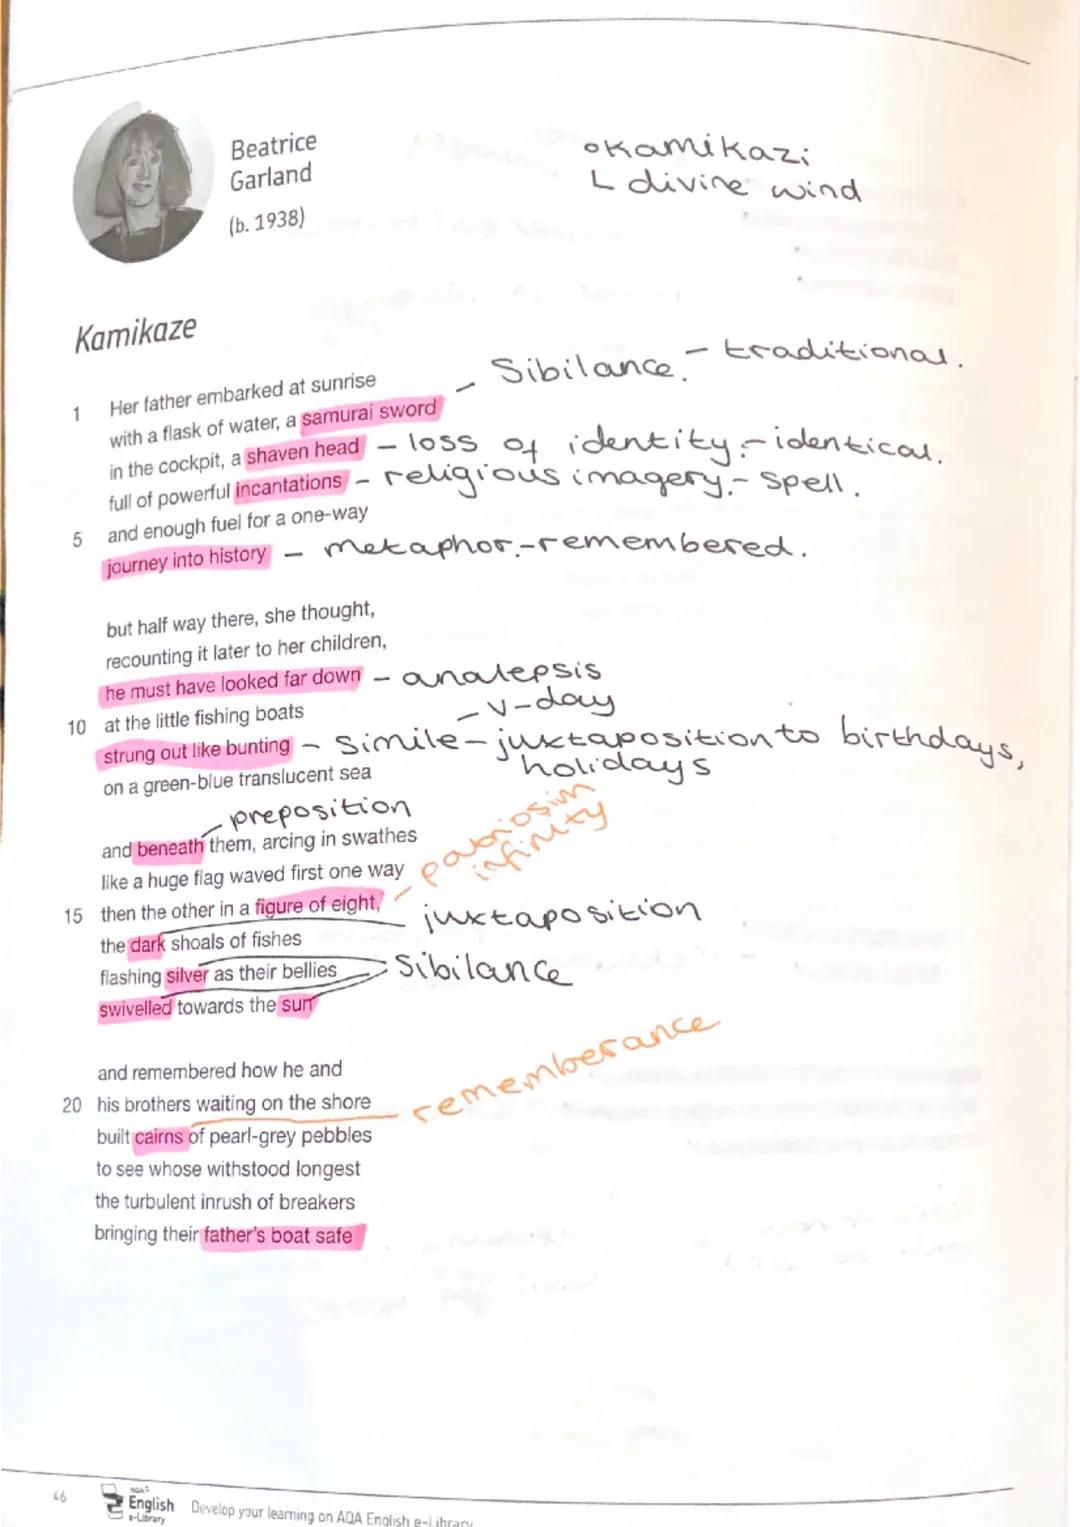 Beatrice
Garland
(b. 1938)
okamikazi
L divine wind
Kamikaze
Sibilance. - traditional.
1 Her father embarked at sunrise
with a flask of water, a samurai sword
in the cockpit, a shaven head - loss of identity - identical.
full of powerful incantations - religious imagery - spell.
5 and enough fuel for a one-way
journey into history - metaphor - remembered.
but half way there, she thought,
recounting it later to her children,
he must have looked far down - analepsis
- v-day
10 at the little fishing boats
strung out like bunting - Simile - juxtaposition to birthdays,
holidays
on a green-blue translucent sea
preposition
and beneath them, arcing in swathes
like a huge flag waved first one way
patriosim
infinity
15 then the other in a figure of eight,
juxtaposition
the dark shoals of fishes
flashing silver as their bellies
Sibilance
swivelled towards the sun
and remembered how he and
20 his brothers waiting on the shore
rememberance
built cairns of pearl-grey pebbles
to see whose withstood longest
the turbulent inrush of breakers
bringing their father's boat safe
46
AQA
English
e-Library
Develop your learning on AQA English e-Library